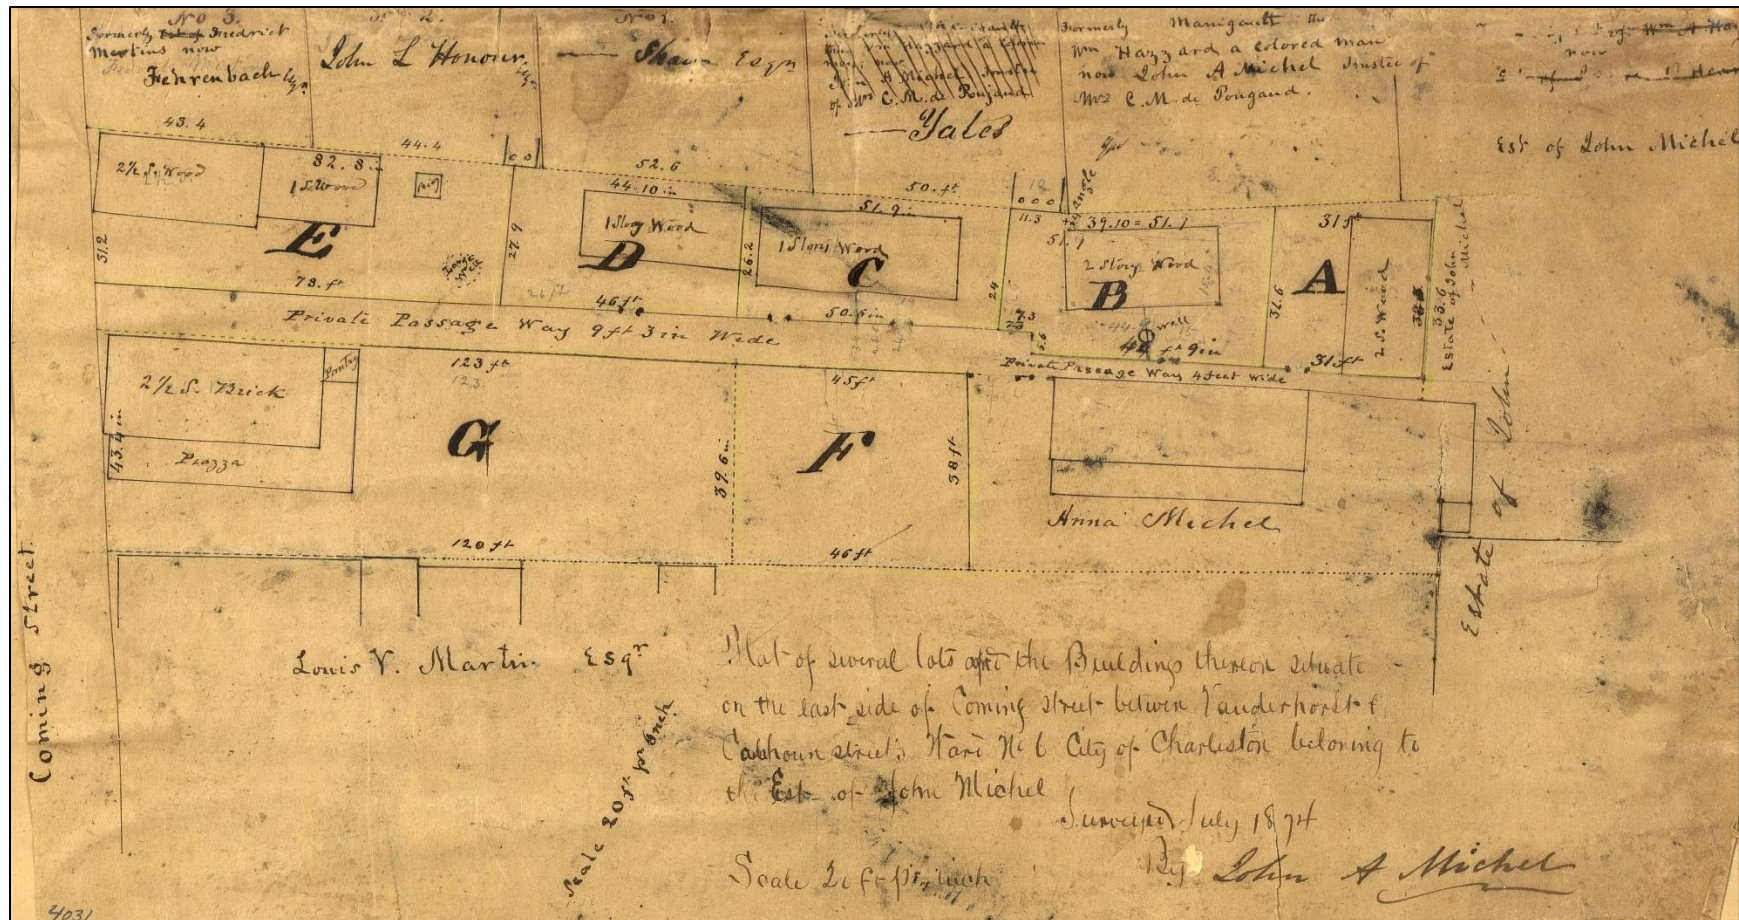 No 3.
Formerly Est of Fredrick
Mertins now
Fehrenbach Esqr
John L Honour Esqr
No 1.
Shaw Esqr
A Michel Trustee
of Mrs C. M. de
Yates
Formerly Manigault
Wm Hazzard a Colored man
now John A Michel Trustee of
Mrs C. M. de Pongaud.
of Wm A
now
Est of John Michel
43.4
44.4
52.6
50. ft
2½ S. Wood
82. 8 in
1 S. Wood
E
31.2
78. ft
27.9
44. 10 in
1 Story Wood
D
46 ft
26.2
51. 9 in
1 Story Wood
C
50. 6 in
24
11.3
angle
39.10 = 51.1
51.1
2 Story Wood
B
Well
ft 9 in
7.3
31.6
31 ft
A
2 S. Wood
31 ft
33.6
Estate of John Michel
Private Passage Way 9 ft 3 in Wide
Private Passage Way 4 feet wide
2½ S. Brick
Pantry
Piazza
43.4 in
123 ft
123
G
120 ft
39.6 in
45 ft
F
46 ft
38 ft
Anna Michel
Estate of John
Coming Street
Louis V. Martin Esqr
Scale 20 ft pr Inch
Plat of several lots and the Buildings thereon situate
on the east side of Coming street between Vanderhorst &
Calhoun streets Ward No 6 City of Charleston belonging to
the Est of John Michel
Surveyed July 1874
By John A Michel
Scale 20 ft pr inch
4031